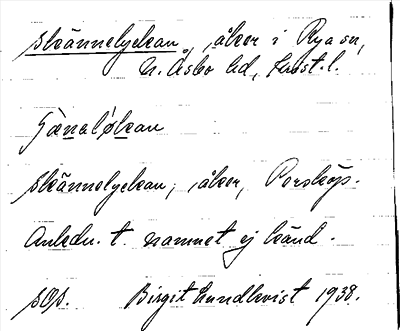 skännelyckan, åker i Rya sn,
N. Åsbo hd, Krist. l.
skännelyckan, åker, Porsköp.
Anledn. t. namnet ej känd.
sOs. Birgit Lundkvist 1938.